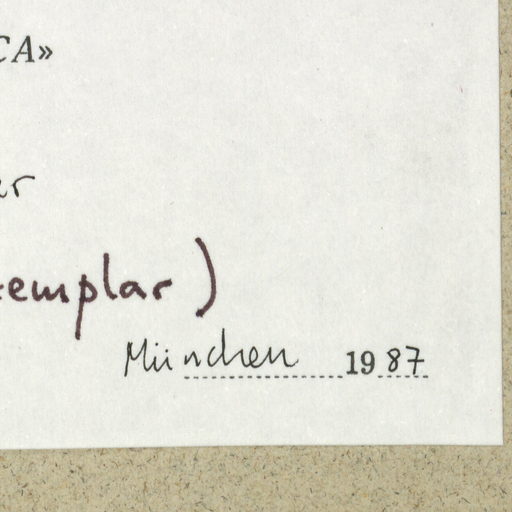 CA»
er
xemplar)
München 1987